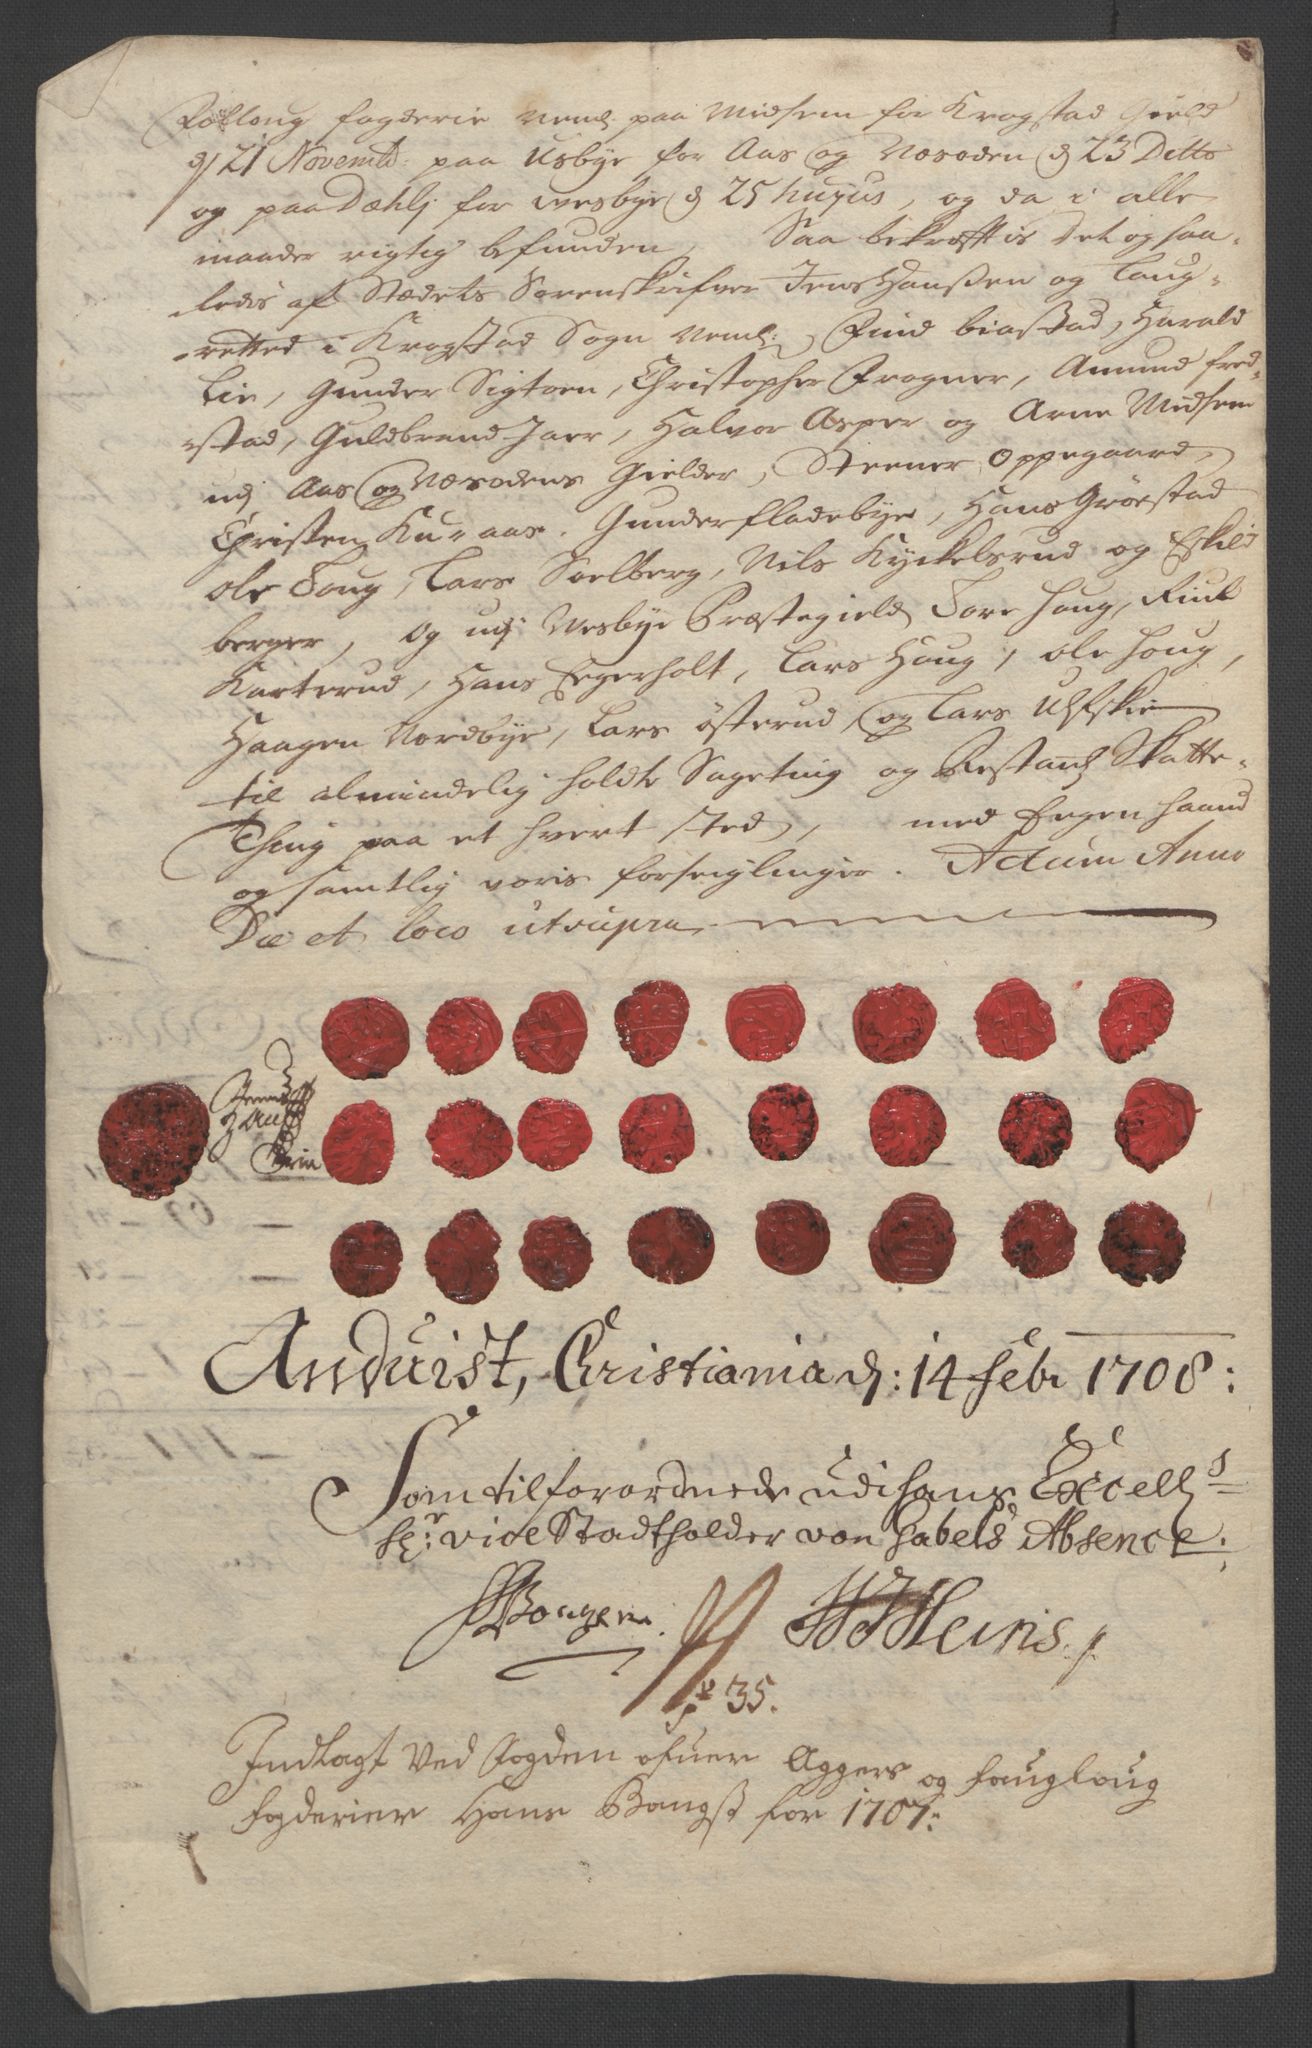 Folloug fogderie Neml. paa Midsem for Krogstad Gield
dj 21 Novembr: paa Usbye for Aas og Næsoden d 23 Ditto
og paa Dæhlj for wesbye d 25 hujus, og da i alle
maader rigtig befunden, Saa bekræfftis det og saa-
ledis af Stædets Sorenskrifver Jens Hansßen og Laug-
retted i Krogstad Sogn Neml: Find biastad, Harald
Lie, Gunder Sigtoen, Christopher Frogner, Amund fred-
stad, Guldbrand Jaer, Halvor Asper og Arne Midsem
udj Aas og Næsodens Gielder, Steener Oppegaard,
Christen Kuraas. Gunder fladebye, Hans Grøestad
ole Foug, Lars Soelberg, Nils Kyckelsrud og Eskild
berger, og udj Wesbye Præstegield Tore houg, Siul
Karterud, Hans Egerholt, Lars Houg, ole houg,
Haagen Nordbye, Lars österud, og Lars Ulfskie
til almindelig holdte Sageting og Restantz Skatte-
Thing paa et hvert sted, med Eegen haand
og samtlig voris forseiglinger. Actum Anno
Die et loco utsupra
Jens
Hansß
Anduist, Cristiania d: 14 febr 1708:
Som tilforordnede udi hans Excells
hr: vice Stadtholder von habels Absence.
Heins.
No 35.
Indlagt Ved Fogden ofuer Aggers og foug loug
fogderier Hans Bangß for 1707: